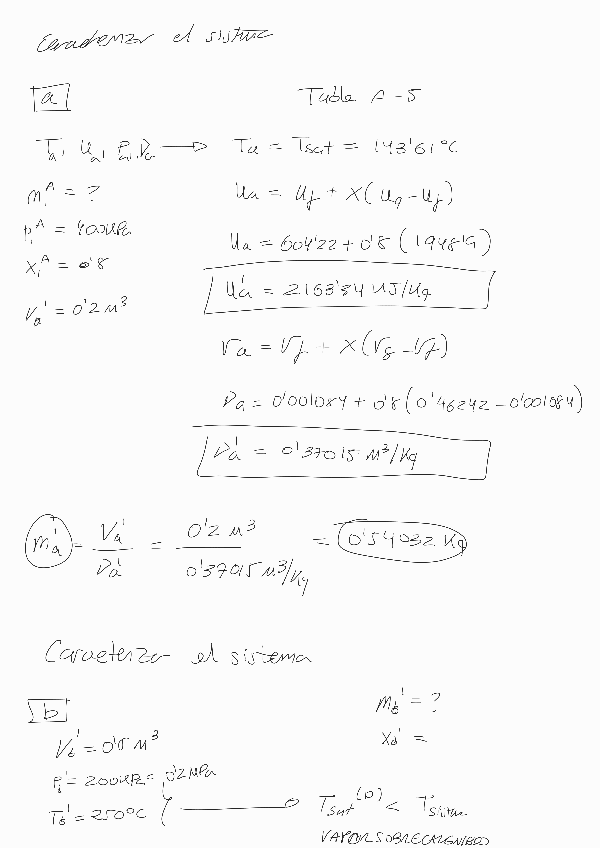 Caracterizar el sistema
a
Table A-5
Ta, ua, Pa, νa → Ta = Tsat = 143'61°C
m₁ᴬ = ?
ua = uf + x(ug - uf)
P₁ᴬ = 400kPa
ua = 604'22 + 0'8 (1948'9)
x₁ᴬ = 0'8
ua' = 2163'34 kJ/kg
Va' = 0'2 m³
νa = νf + x(νg - νf)
νa = 0'001084 + 0'8(0'46242 - 0'001084)
νa' = 0'37015 m³/kg
ma' = Va'/νa' = 0'2 m³ / 0'37015 m³/kg = 0'54032 kg
Caracterizo el sistema
b
mb' = ?
Vb' = 0'5 m³
xb' =
Pb' = 200kPa = 0'2 MPa
Tb' = 250°C → Tsat(P) < Tsistema
VAPOR SOBRECALENTADO